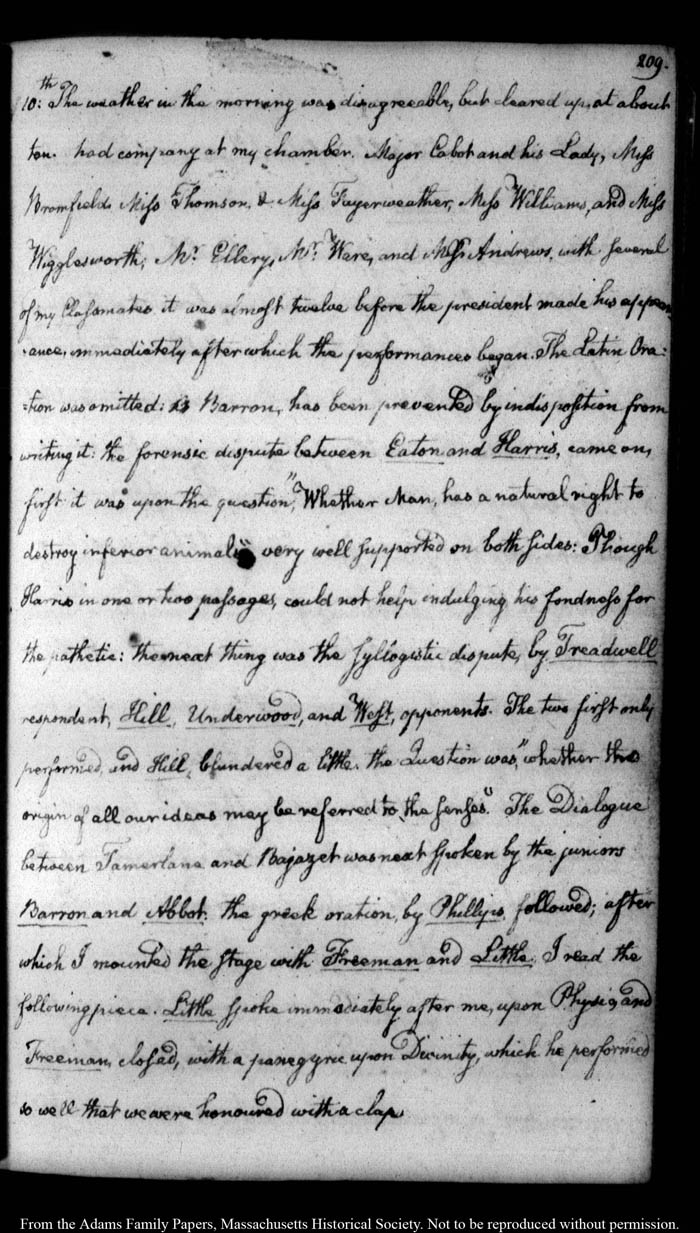 209.
10:th The weather in the morning was disagreeable, but cleared up, at about
ten. had company at my chamber. Major Cabot and his Lady, Miss
Bromfield Miss Thomson, & Miss Fayerweather, Miss Williams, and Miss
Wigglesworth; Mr. Ellery, Mr. Ware, and Miss Andrews, with several
of my Classmates it was almost twelve before the president made his appear-
ance, immediately after which the performances began. The Latin Ora=
=tion was omitted: as Barron, has been prevented by indisposition from
writing it: the forensic dispute between Eaton and Harris, came on,
first it was upon the question, "Whether Man, has a natural right to
destroy inferior animals" very well supported on both sides: Though
Harris in one or two passages, could not help indulging his fondness for
the pathetic: the next thing was the syllogistic dispute, by Treadwell
respondent, Hill, Underwood, and West, opponents. The two first only
performed, and Hill, blundered a little. the Question was, "whether the
origin of all our ideas may be referred to the senses". The Dialogue
between Tamerlane and Bajazet was next spoken by the juniors
Barron and Abbot. the greek oration, by Phillips, followed; after
which I mounted the stage with Freeman and Little. I read the
following piece. Little spoke immediately after me, upon Physic, and
Freeman, closed, with a panegyric upon Divinity, which he performed
so well that we were honoured with a clap
From the Adams Family Papers, Massachusetts Historical Society. Not to be reproduced without permission.